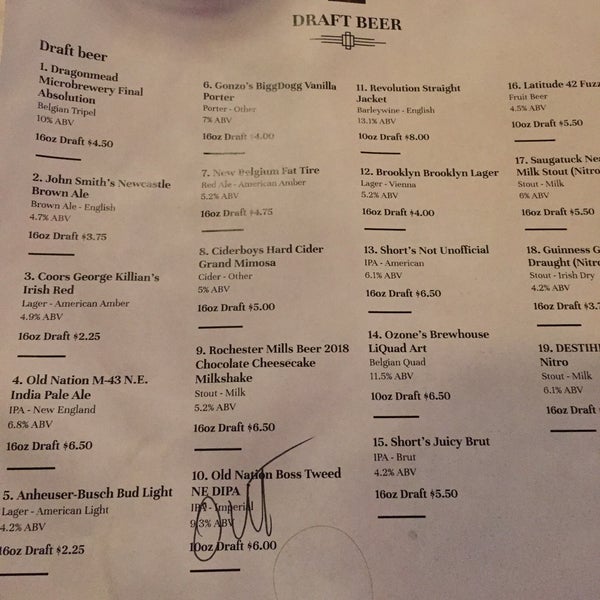 DRAFT BEER
Draft beer
1. Dragonmead
Microbrewery Final
Absolution
Belgian Tripel
10% ABV
16oz Draft $4.50
2. John Smith's Newcastle
Brown Ale
Brown Ale - English
4.7% ABV
16oz Draft $3.75
3. Coors George Killian's
Irish Red
Lager - American Amber
4.9% ABV
16oz Draft $2.25
4. Old Nation M-43 N.E.
India Pale Ale
IPA - New England
6.8% ABV
16oz Draft $6.50
5. Anheuser-Busch Bud Light
Lager - American Light
4.2% ABV
16oz Draft $2.25
6. Gonzo's BiggDogg Vanilla
Porter
Porter - Other
7% ABV
16oz Draft $4.00
7. New Belgium Fat Tire
Red Ale - American Amber
5.2% ABV
16oz Draft $4.75
8. Ciderboys Hard Cider
Grand Mimosa
Cider - Other
5% ABV
16oz Draft $5.00
9. Rochester Mills Beer 2018
Chocolate Cheesecake
Milkshake
Stout - Milk
5.2% ABV
16oz Draft $6.50
10. Old Nation Boss Tweed
NE DIPA
IPA - Imperial
9.3% ABV
10oz Draft $6.00
out
11. Revolution Straight
Jacket
Barleywine - English
13.1% ABV
10oz Draft $8.00
12. Brooklyn Brooklyn Lager
Lager - Vienna
5.2% ABV
16oz Draft $4.00
13. Short's Not Unofficial
IPA - American
6.1% ABV
16oz Draft $6.50
14. Ozone's Brewhouse
LiQuad Art
Belgian Quad
11.5% ABV
10oz Draft $6.50
15. Short's Juicy Brut
IPA - Brut
4.2% ABV
16oz Draft $5.50
16. Latitude 42 Fuzz
Fruit Beer
4.5% ABV
10oz Draft $5.50
17. Saugatuck Ne
Milk Stout (Nitro
Stout - Milk
6% ABV
16oz Draft $5.50
18. Guinness G
Draught (Nitro
Stout - Irish Dry
4.2% ABV
16oz Draft $3.7
19. DESTIH
Nitro
Stout - Milk
6.1% ABV
16oz Draft